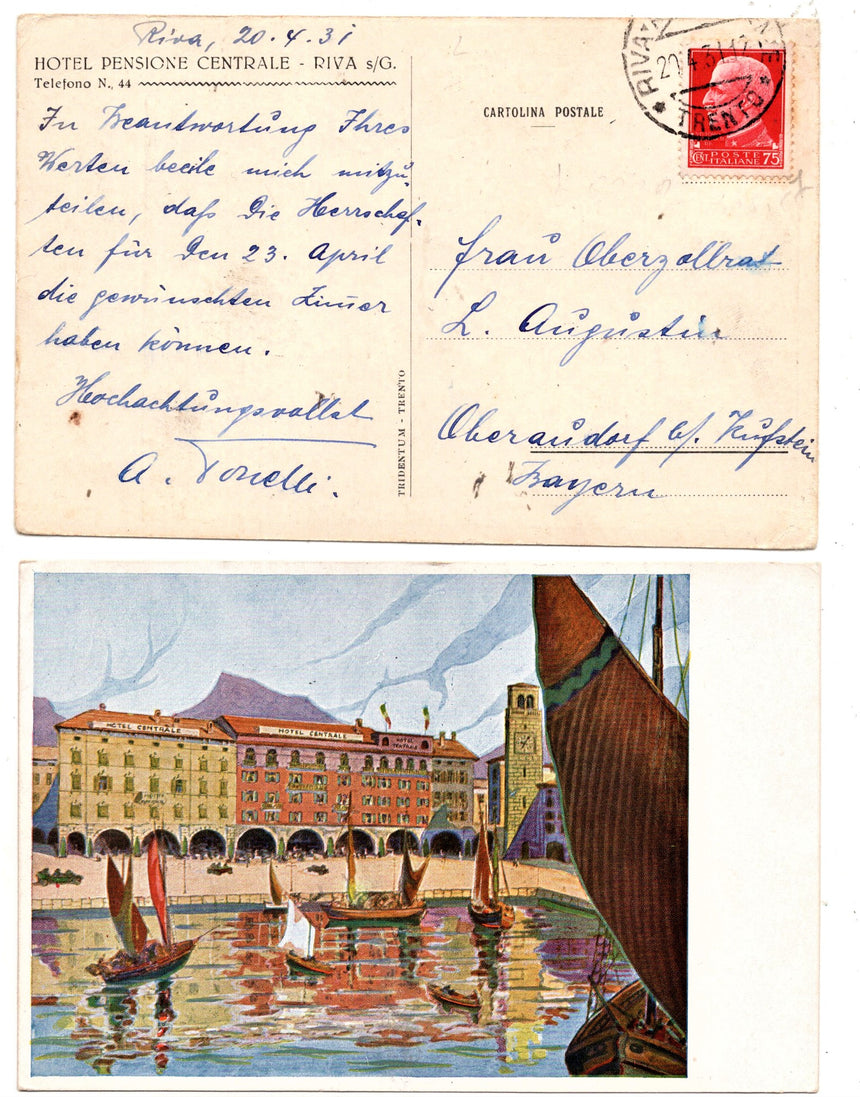 Riva, 20.4.31
HOTEL PENSIONE CENTRALE - RIVA s/G.
Telefono N. 44
In Beantwortung Ihres
Werten beeile mich mitzu-
teilen, daß Die Herrschaf-
ten für Den 23. April
die gewünschten Zimer
haben können.
Hochachtungsvollst
A. Tonelli.
TRIDENTUM - TRENTO
CARTOLINA POSTALE
RIVA
20.4.31.17
TRENTO
CENT POSTE 75
ITALIANE
Frau Oberzollrat
L. Augustin
Oberaudorf b/ Kufstein
Bayern
HOTEL CENTRALE
HOTEL CENTRALE
HOTEL
CENTRALE